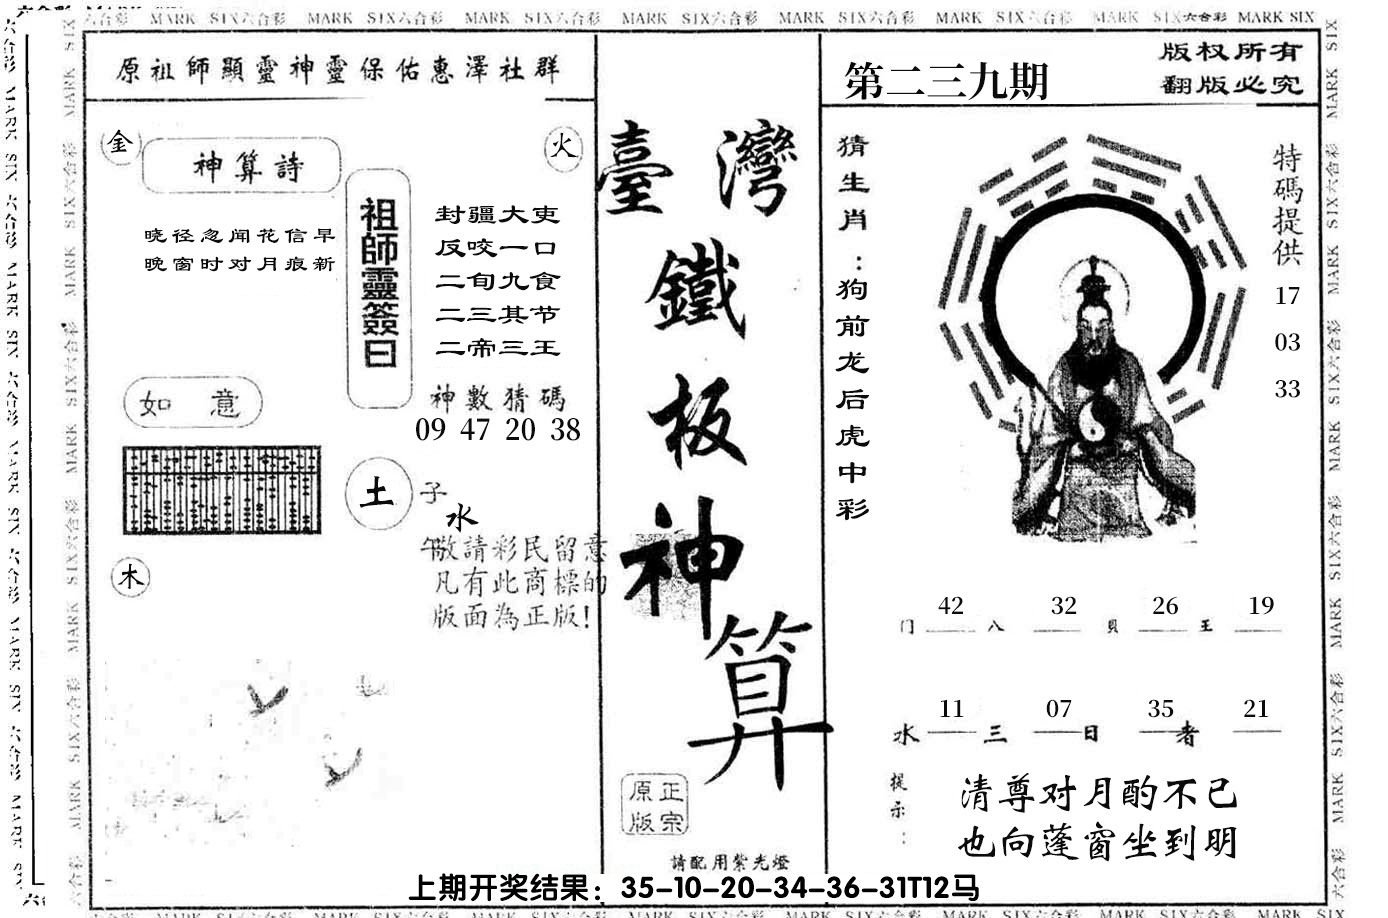 MARK SIX六合彩 MARK SIX六合彩 MARK SIX六合彩 MARK SIX六合彩 MARK SIX六合彩 MARK SIX六合彩 MARK SIX六合彩 MARK SIX
原祖師顯靈神靈保佑惠澤社群
金
火
神算詩
晓径忽闻花信早
晚窗时对月痕新
祖師靈簽曰
封疆大吏
反咬一口
二旬九食
二三其节
二帝三王
神數猜碼
09 47 20 38
如意
土
子
水
午
木
敬請彩民留意
凡有此商標的
版面為正版!
臺灣
鐵
板
神
算
原正
版宗
請配用紫光燈
第二三九期
版权所有
翻版必究
猜生肖:狗前龙后虎中彩
特碼提供
17
03
33
门 42 八 32 貝 26 王 19
水 11 三 07 日 35 者 21
提示:
清尊对月酌不已
也向蓬窗坐到明
上期开奖结果：35-10-20-34-36-31T12马